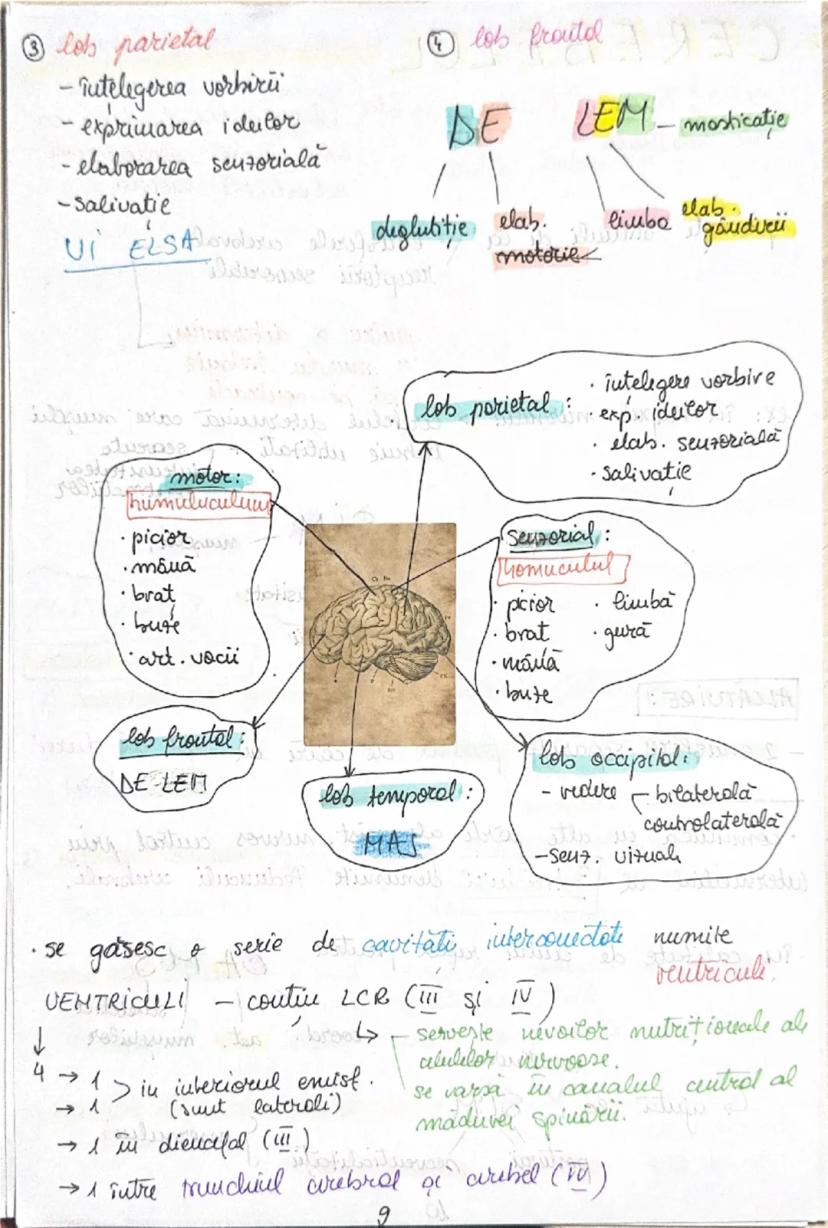 ③ lob parietal
- înțelegerea vorbirii
- exprimarea ideilor
- elaborarea senzorială
- salivație
VI ELSA
④ lob frontal
DE LEM - masticație
deglutiție
elab.
motorie
limba
elab.
gândirii
lob parietal:
· înțelegere vorbire
· exp. ideilor
· elab. senzorială
· salivație
motor:
humuluculum
· picior
· mână
· braț
· buze
· art. vocii
senzorial:
homuculul
· picior
· braț
· mână
· buze
· limbă
· gură
lob frontal:
DE LEM
lob temporal:
MAS
lob occipital:
- vedere
bilaterală
controlaterală
- senz. vizuale
· se găsesc o serie de cavități interconectate numite
ventriculi.
VENTRICULI - conțin LCR (III și IV)
↳ - servește nevoilor nutriționale ale
celulelor nervoase.
se varsă în canalul central al
măduvei spinării.
↓
4 → 1 > în interiorul emisf.
→ 1 (sunt laterali)
→ 1 în diencefal (III)
→ 1 între trunchiul cerebral și cerebel (IV)
9